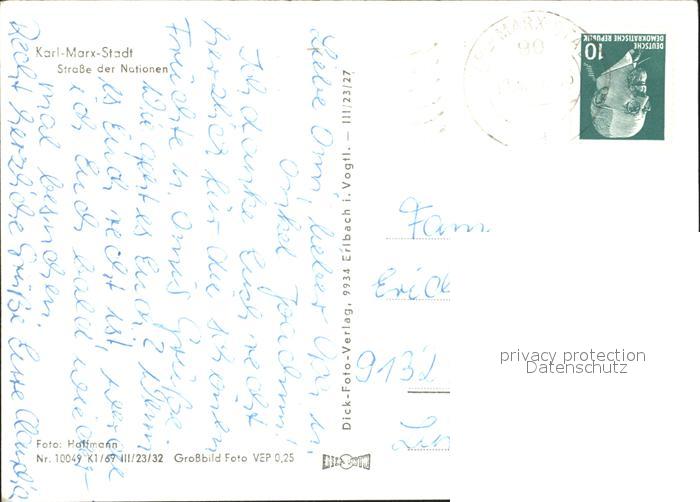 Karl-Marx-Stadt
Straße der Nationen
Liebe Omi, lieber Opi u.
Onkel Joachim!
Ich danke Euch recht
herzlich für die schönen
Früchte u. Omis Grüße.
Wie geht es Euch? Wenn
es Euch recht ist, werde
ich Euch bald wieder
mal besuchen.
Recht herzliche Grüße Eure Claudia
Foto: Hoffmann
Nr. 10049 K1/69 III/23/32 Großbild Foto VEP 0,25
Dick-Foto-Verlag, 9934 Erlbach i. Vogtl. — III/23/27
MARX
90
DEUTSCHE
DEMOKRATISCHE REPUBLIK
10
Fam
Erich
9132
privacy protection
Datenschutz